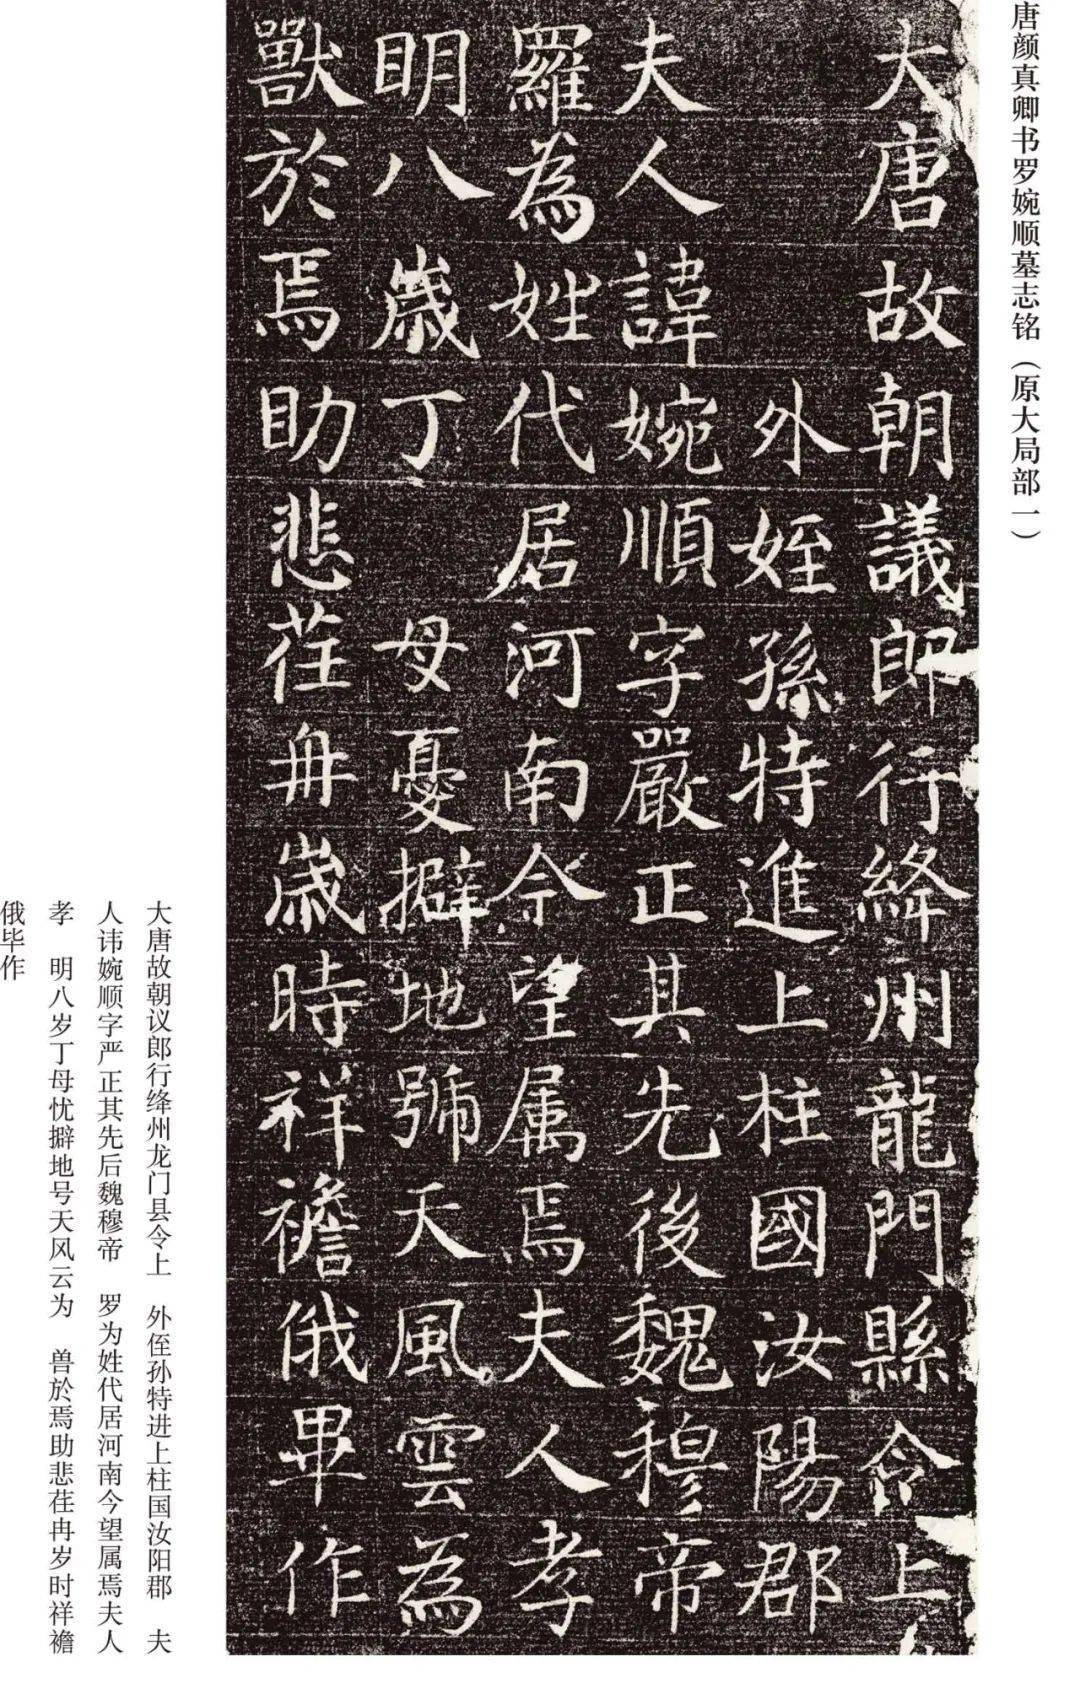 唐颜真卿书罗婉顺墓志铭（原大局部一）
大唐故朝議郎行絳州龍門縣令上
外姪孫特進上柱國汝陽郡
夫人諱婉順字嚴正其先後魏穆帝
羅為姓代居河南今望属焉夫人孝
明八歲丁　母憂擗地號天風雲為
獸於焉助悲荏冉歲時祥襜俄畢作
大唐故朝议郎行绛州龙门县令上　外侄孙特进上柱国汝阳郡　夫
人讳婉顺字严正其先后魏穆帝　罗为姓代居河南今望属焉夫人
孝　明八岁丁母忧擗地号天风云为　兽於焉助悲荏冉岁时祥襜
俄毕作